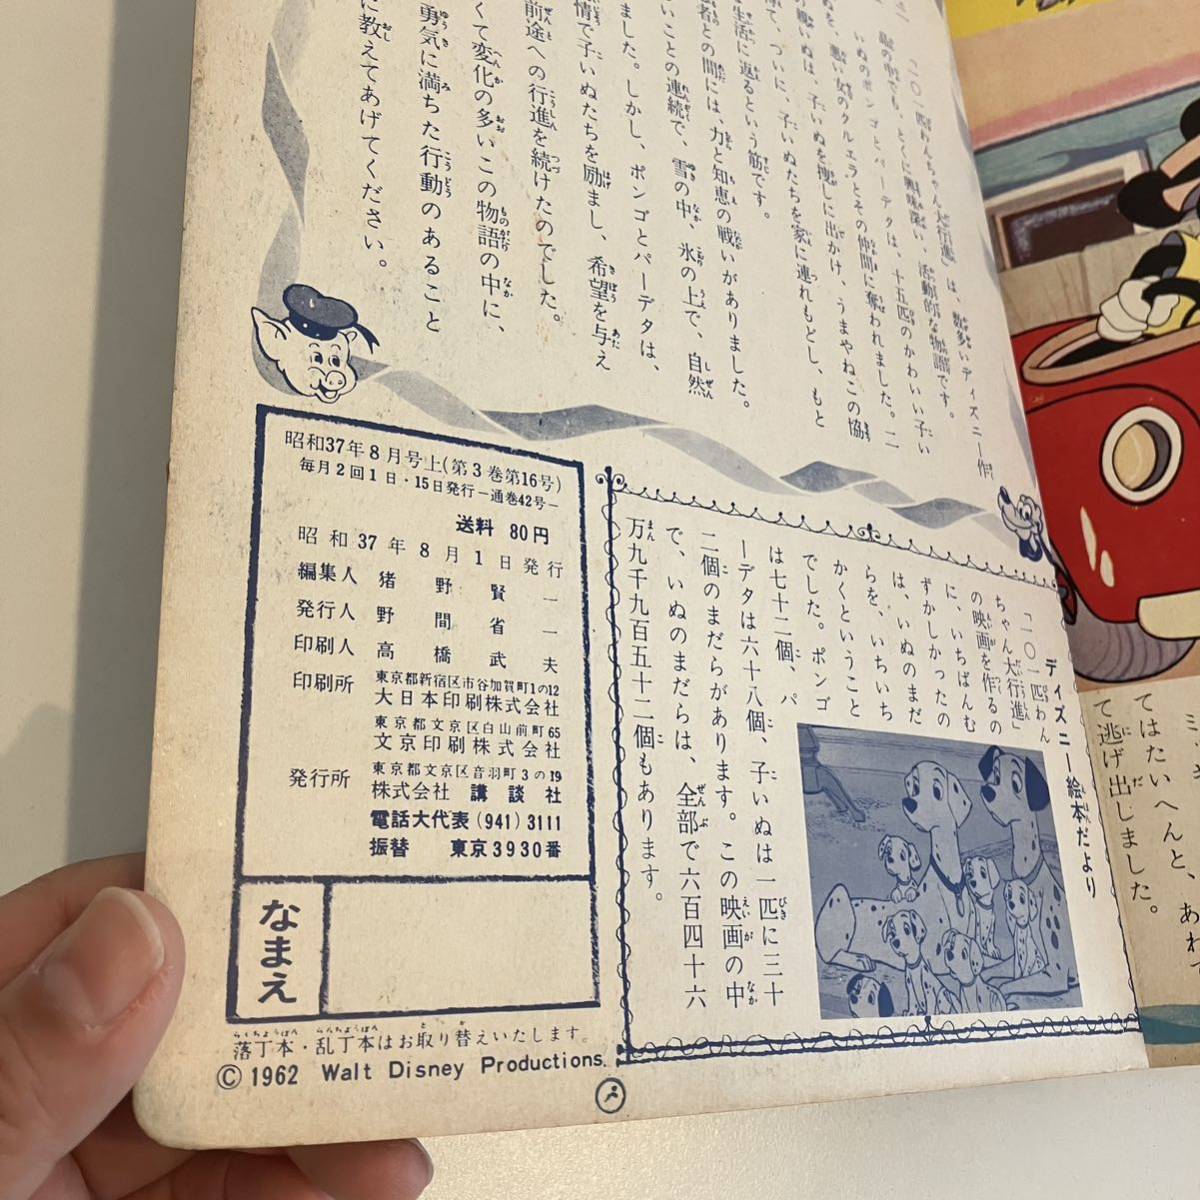 「一〇一匹わんちゃん大行進」は、数多いディズニー作
品の中でも、とくに興味深い、活動的な物語です。
いぬのポンゴとパーデタは、十五匹のかわいい子い
ぬを、悪い女のクルエラとその仲間に奪われました。二
の親いぬは、子いぬを捜しに出かけ、うまやねこの協
ついに、子いぬたちを家に連れもどし、もと
生活に返るという筋です。
者との間には、力と知恵の戦いがありました。
いことの連続で、雪の中、氷の上で、自然
ました。しかし、ポンゴとパーデタは、
情で子いぬたちを励まし、希望を与え
前途への行進を続けたのでした。
くて変化の多いこの物語の中に、
勇気に満ちた行動のあること
に教えてあげてください。
昭和37年8月号上(第3巻第16号)
毎月2回1日・15日発行—通巻42号—
送料 80円
昭和37年8月1日発行
編集人 猪野賢一
発行人 野間省一
印刷人 高橋武夫
印刷所 東京都新宿区市谷加賀町1の12
大日本印刷株式会社
東京都文京区白山前町65
文京印刷株式会社
発行所 東京都文京区音羽町3の19
株式会社 講談社
電話大代表(941)3111
振替 東京3930番
なまえ
落丁本・乱丁本はお取り替えいたします。
© 1962 Walt Disney Productions.
ディズニー絵本だより
「一〇一匹わん
ちゃん大行進」
の映画を作るの
に、いちばんむ
ずかしかったの
は、いぬのまだ
らを、いちいち
かくということ
でした。ポンゴ
は七十二個、パ
ーデタは六十八個、子いぬは一匹に三十
二個のまだらがあります。この映画の中
で、いぬのまだらは、全部で六百四十六
万九千九百五十二個もあります。
てはたいへんと、あわて
て逃げ出しました。